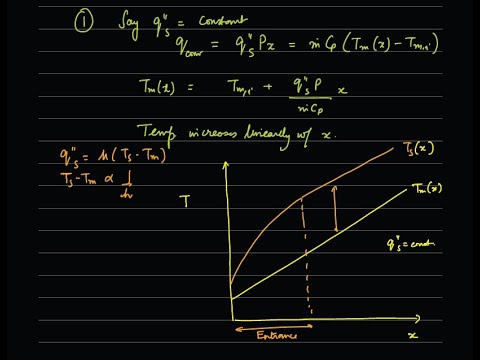 ① Say q"s = constant
q conv = q"s Px = ṁ Cp (Tm(x) - Tm,i)
Tm(x) = Tm,i + q"s P / ṁ Cp x
Temp increases linearly w/ x.
q"s = h (Ts - Tm)
Ts - Tm ∝ 1/h
Ts(x)
T
Tm(x)
q"s = const
Entrance
x